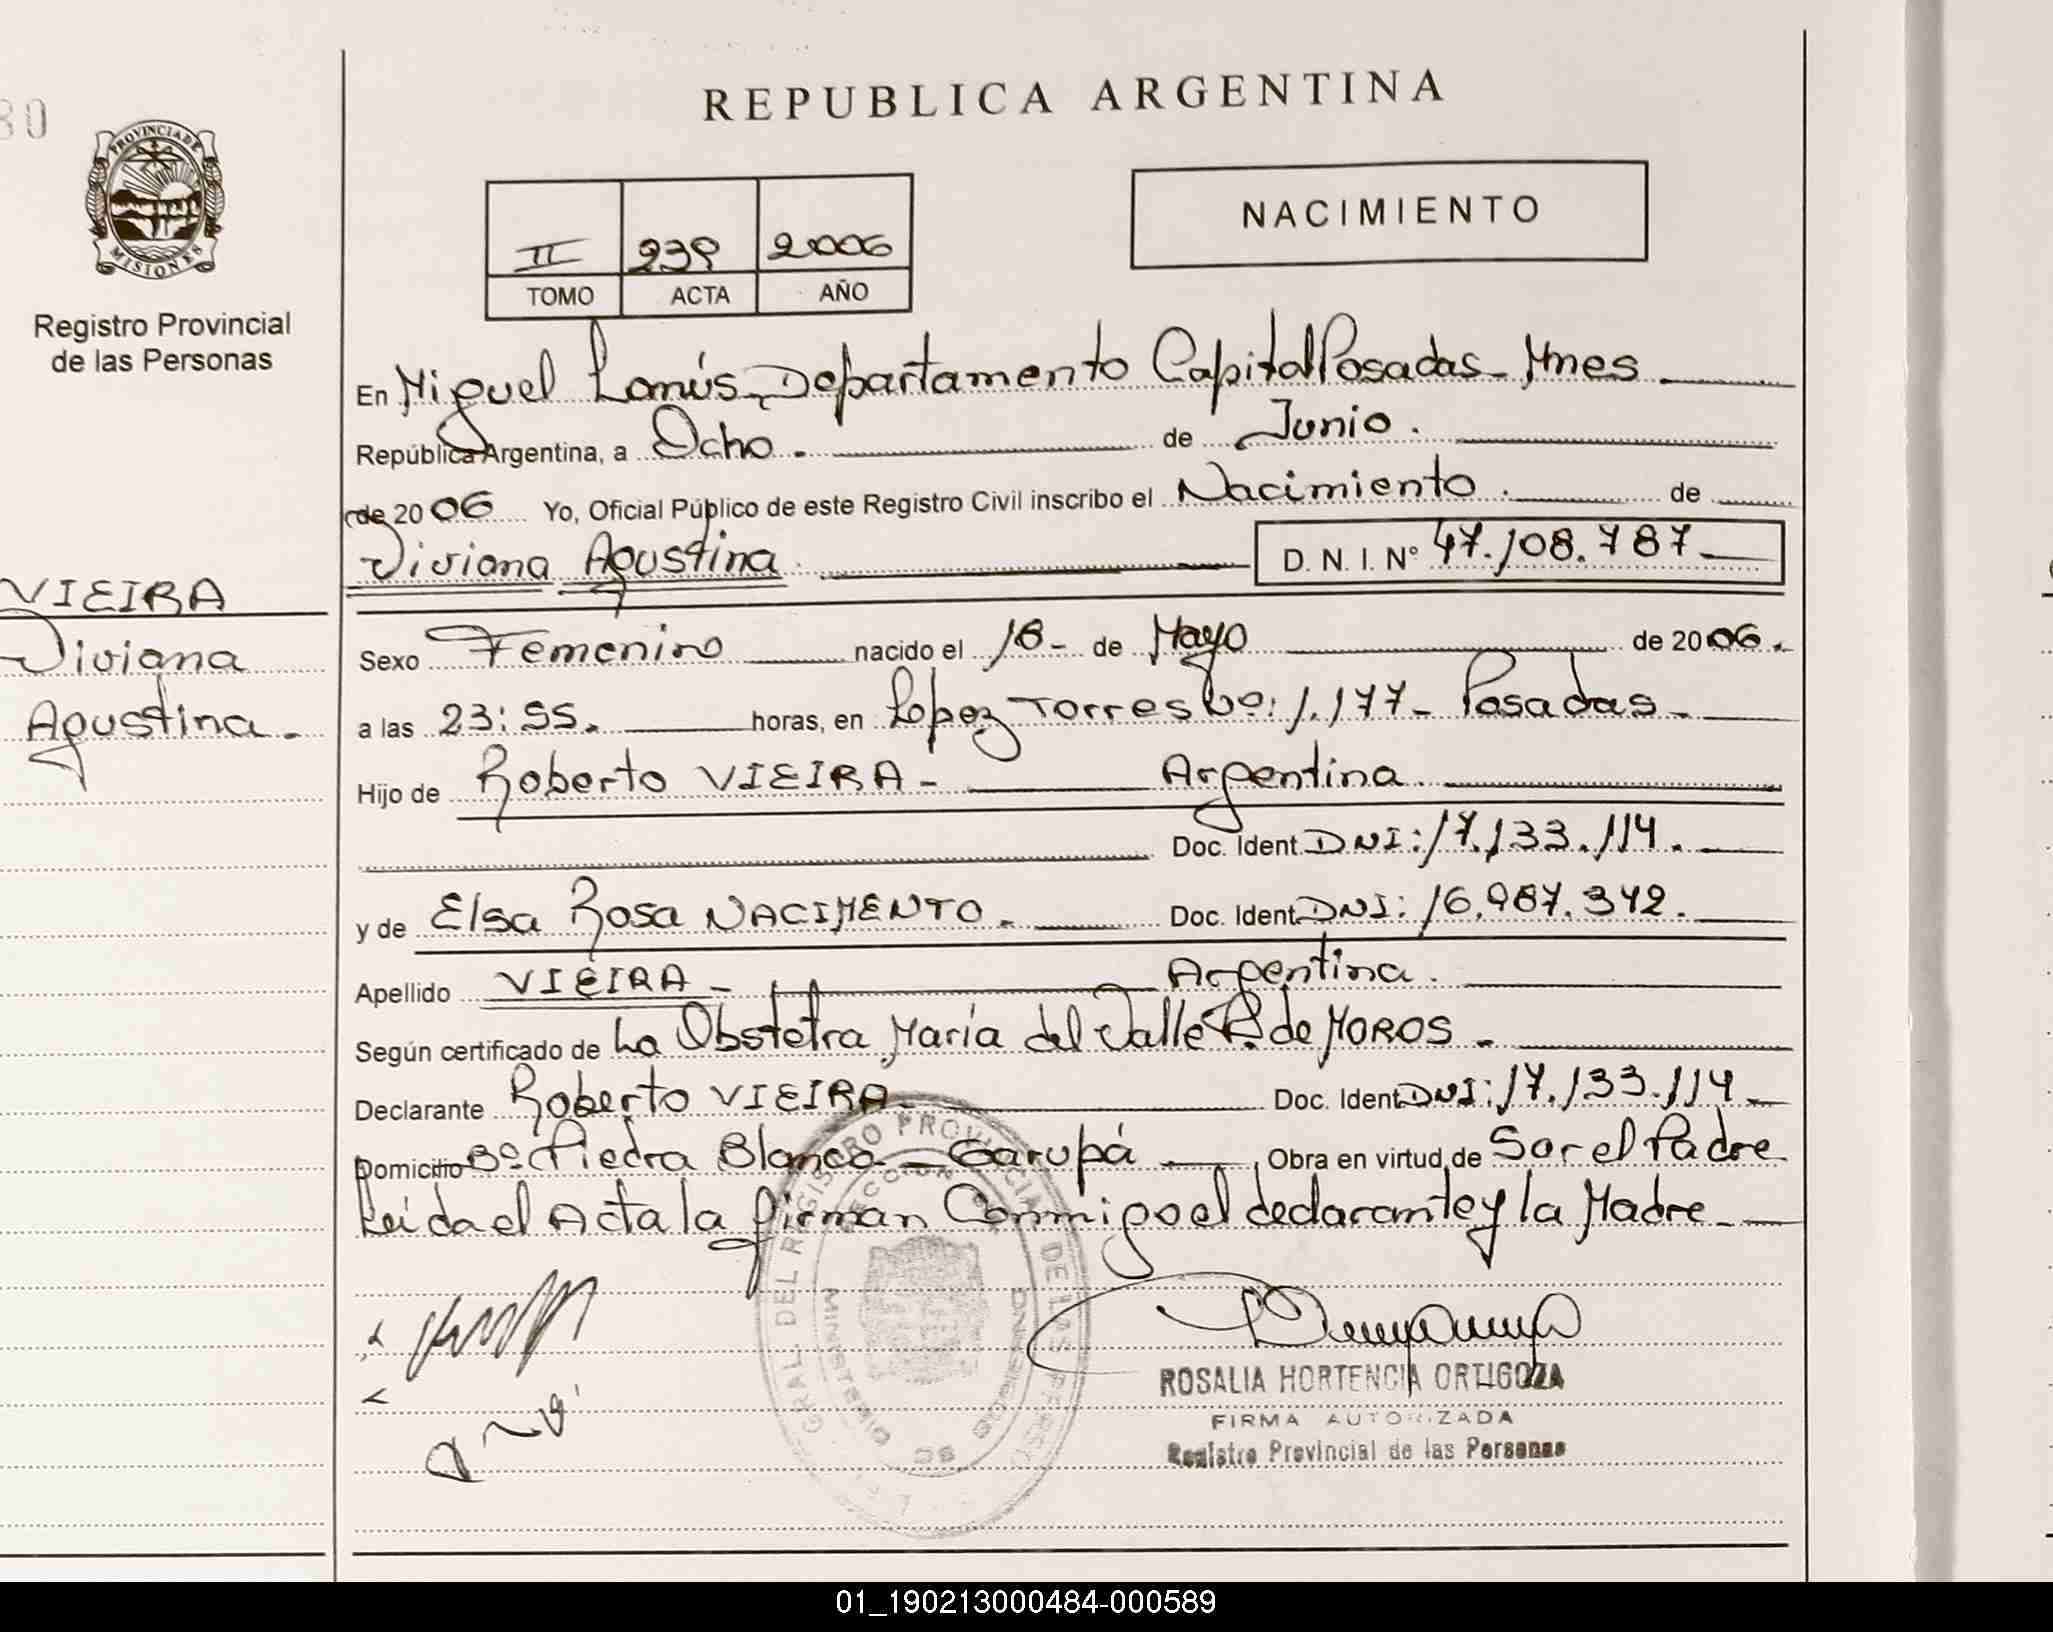 30
PROVINCIA DE
MISIONES
Registro Provincial
de las Personas
REPUBLICA ARGENTINA
II 239 2006
TOMO ACTA AÑO
NACIMIENTO
En Miguel Lanús Departamento Capital Posadas - Mnes
República Argentina, a Ocho. de Junio.
de 2006 Yo, Oficial Público de este Registro Civil inscribo el Nacimiento. de
Viviana Agustina. D. N. I. Nº 47.108.787
VIEIRA
Viviana
Agustina.
Sexo Femenino nacido el 18 - de Mayo de 2006.
a las 23:55. horas, en López Torres Nº: 1.177 - Posadas -
Hijo de Roberto VIEIRA - Argentina
Doc. Ident. DNI: 17.133.114.
y de Elsa Rosa NACIMENTO. Doc. Ident. DNI: 16.987.342.
Apellido VIEIRA - Argentina.
Según certificado de La Obstetra María del Valle R. de MOROS.
Declarante Roberto VIEIRA Doc. Ident DNI: 17.133.114
Domicilio Bº Piedra Blanca - Garupá Obra en virtud de Ser el Padre
Leída el Acta la firman Conmigo el declarante y la Madre
GRAL. DEL REGISTRO PROVINCIAL DE LAS
ROSALIA HORTENCIA ORTIGOZA
FIRMA AUTORIZADA
Registro Provincial de las Personas
01_190213000484-000589